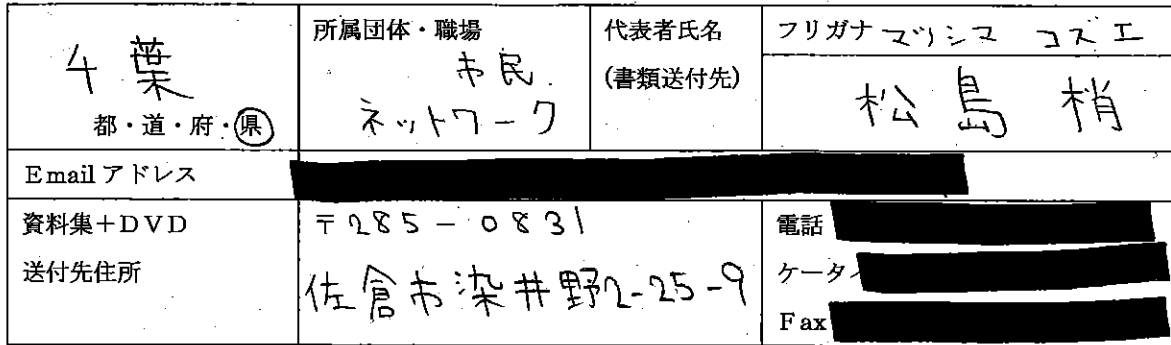 千葉
都・道・府・県
所属団体・職場
市民
ネットワーク
代表者氏名
(書類送付先)
フリガナ マツシマ コズエ
松島 梢
Email アドレス
資料集+DVD
送付先住所
〒285-0831
佐倉市染井野2-25-9
電話
ケータイ
Fax